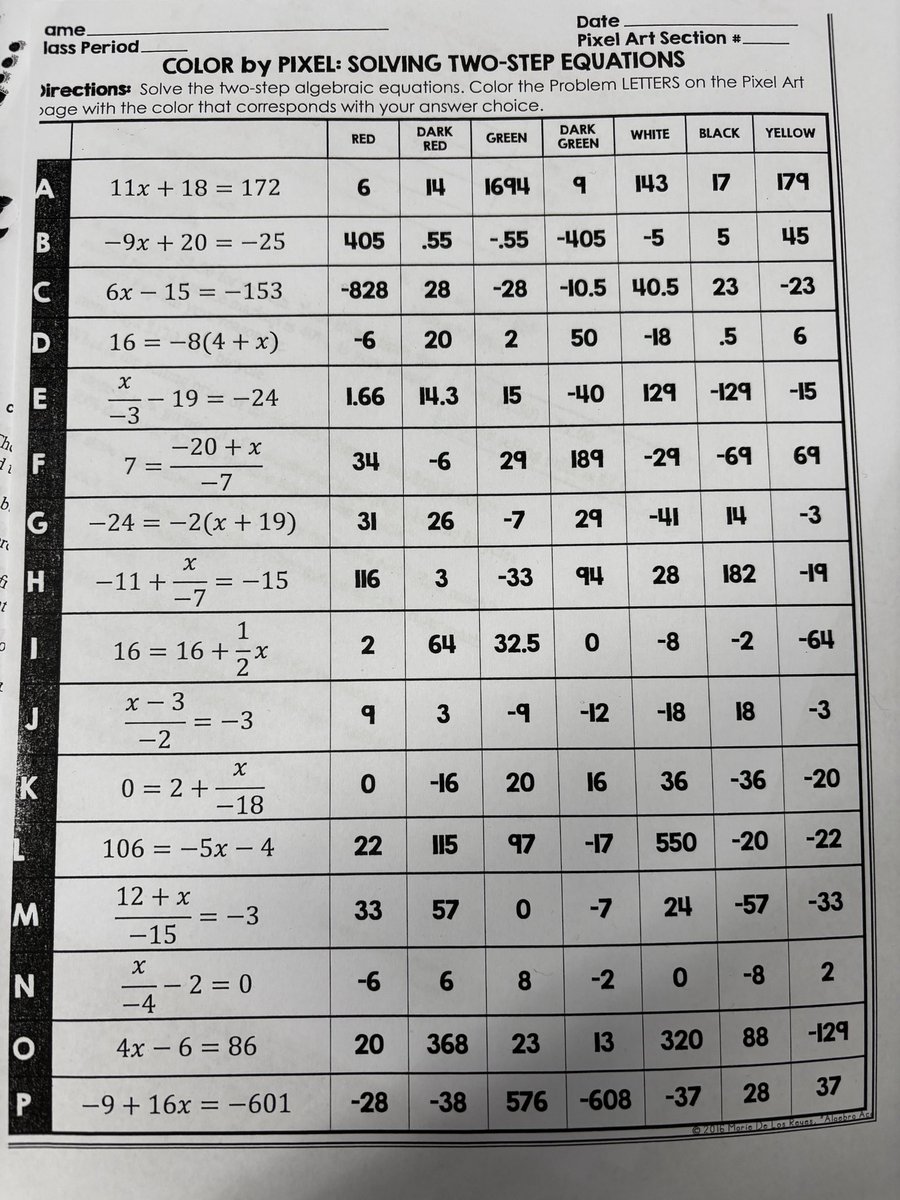 ame
Date
lass Period
Pixel Art Section #
COLOR by PIXEL: SOLVING TWO-STEP EQUATIONS
Directions: Solve the two-step algebraic equations. Color the Problem LETTERS on the Pixel Art
page with the color that corresponds with your answer choice.
RED DARK RED GREEN DARK GREEN WHITE BLACK YELLOW
A 11x + 18 = 172 6 14 1694 9 143 17 179
B −9x + 20 = −25 405 .55 -.55 -405 -5 5 45
C 6x − 15 = −153 -828 28 -28 -10.5 40.5 23 -23
D 16 = −8(4 + x) -6 20 2 50 -18 .5 6
E x/−3 − 19 = −24 1.66 14.3 15 -40 129 -129 -15
F 7 = (−20 + x)/−7 34 -6 29 189 -29 -69 69
G −24 = −2(x + 19) 31 26 -7 29 -41 14 -3
H −11 + x/−7 = −15 116 3 -33 94 28 182 -19
I 16 = 16 + 1/2 x 2 64 32.5 0 -8 -2 -64
J (x − 3)/−2 = −3 9 3 -9 -12 -18 18 -3
K 0 = 2 + x/−18 0 -16 20 16 36 -36 -20
L 106 = −5x − 4 22 115 97 -17 550 -20 -22
M (12 + x)/−15 = −3 33 57 0 -7 24 -57 -33
N x/−4 − 2 = 0 -6 6 8 -2 0 -8 2
O 4x − 6 = 86 20 368 23 13 320 88 -129
P −9 + 16x = −601 -28 -38 576 -608 -37 28 37
© 2016 Marie De Los Reyes, "Algebra Acc